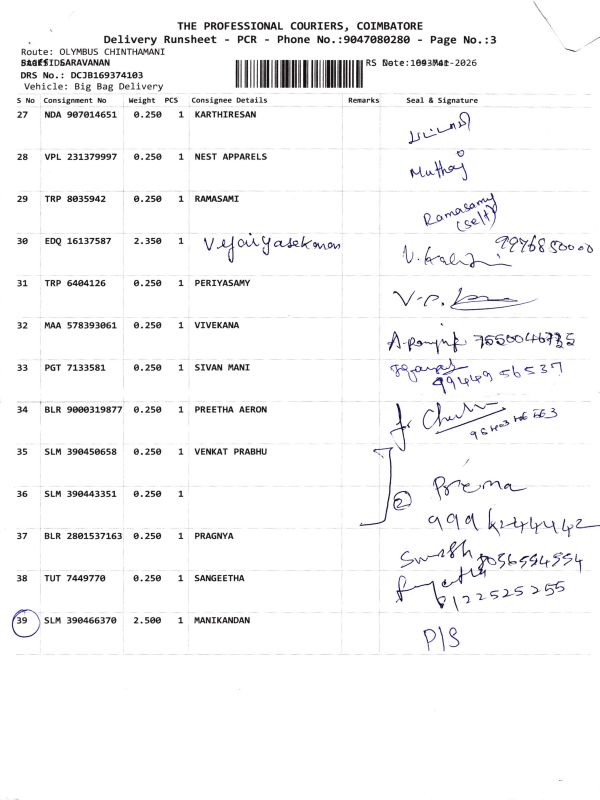 THE PROFESSIONAL COURIERS, COIMBATORE
Delivery Runsheet - PCR - Phone No.:9047080280 - Page No.:3
Route: OLYMBUS CHINTHAMANI
SARAVANAN
DRS No.: DCJB169374103
Vehicle: Big Bag Delivery
S No Consignment No Weight PCS Consignee Details Remarks Seal & Signature
27 NDA 907014651 0.250 1 KARTHIRESAN
28 VPL 231379997 0.250 1 NEST APPARELS Muthaj
29 TRP 8035942 0.250 1 RAMASAMI Ramasamy
(self)
30 EDQ 16137587 2.350 1 9976850000
31 TRP 6404126 0.250 1 PERIYASAMY V.P.
32 MAA 578393061 0.250 1 VIVEKANA
33 PGT 7133581 0.250 1 SIVAN MANI 9944956537
34 BLR 9000319877 0.250 1 PREETHA AERON for
35 SLM 390450658 0.250 1 VENKAT PRABHU
36 SLM 390443351 0.250 1 2 Prema
37 BLR 2801537163 0.250 1 PRAGNYA
38 TUT 7449770 0.250 1 SANGEETHA 8122525255
39 SLM 390466370 2.500 1 MANIKANDAN P/S